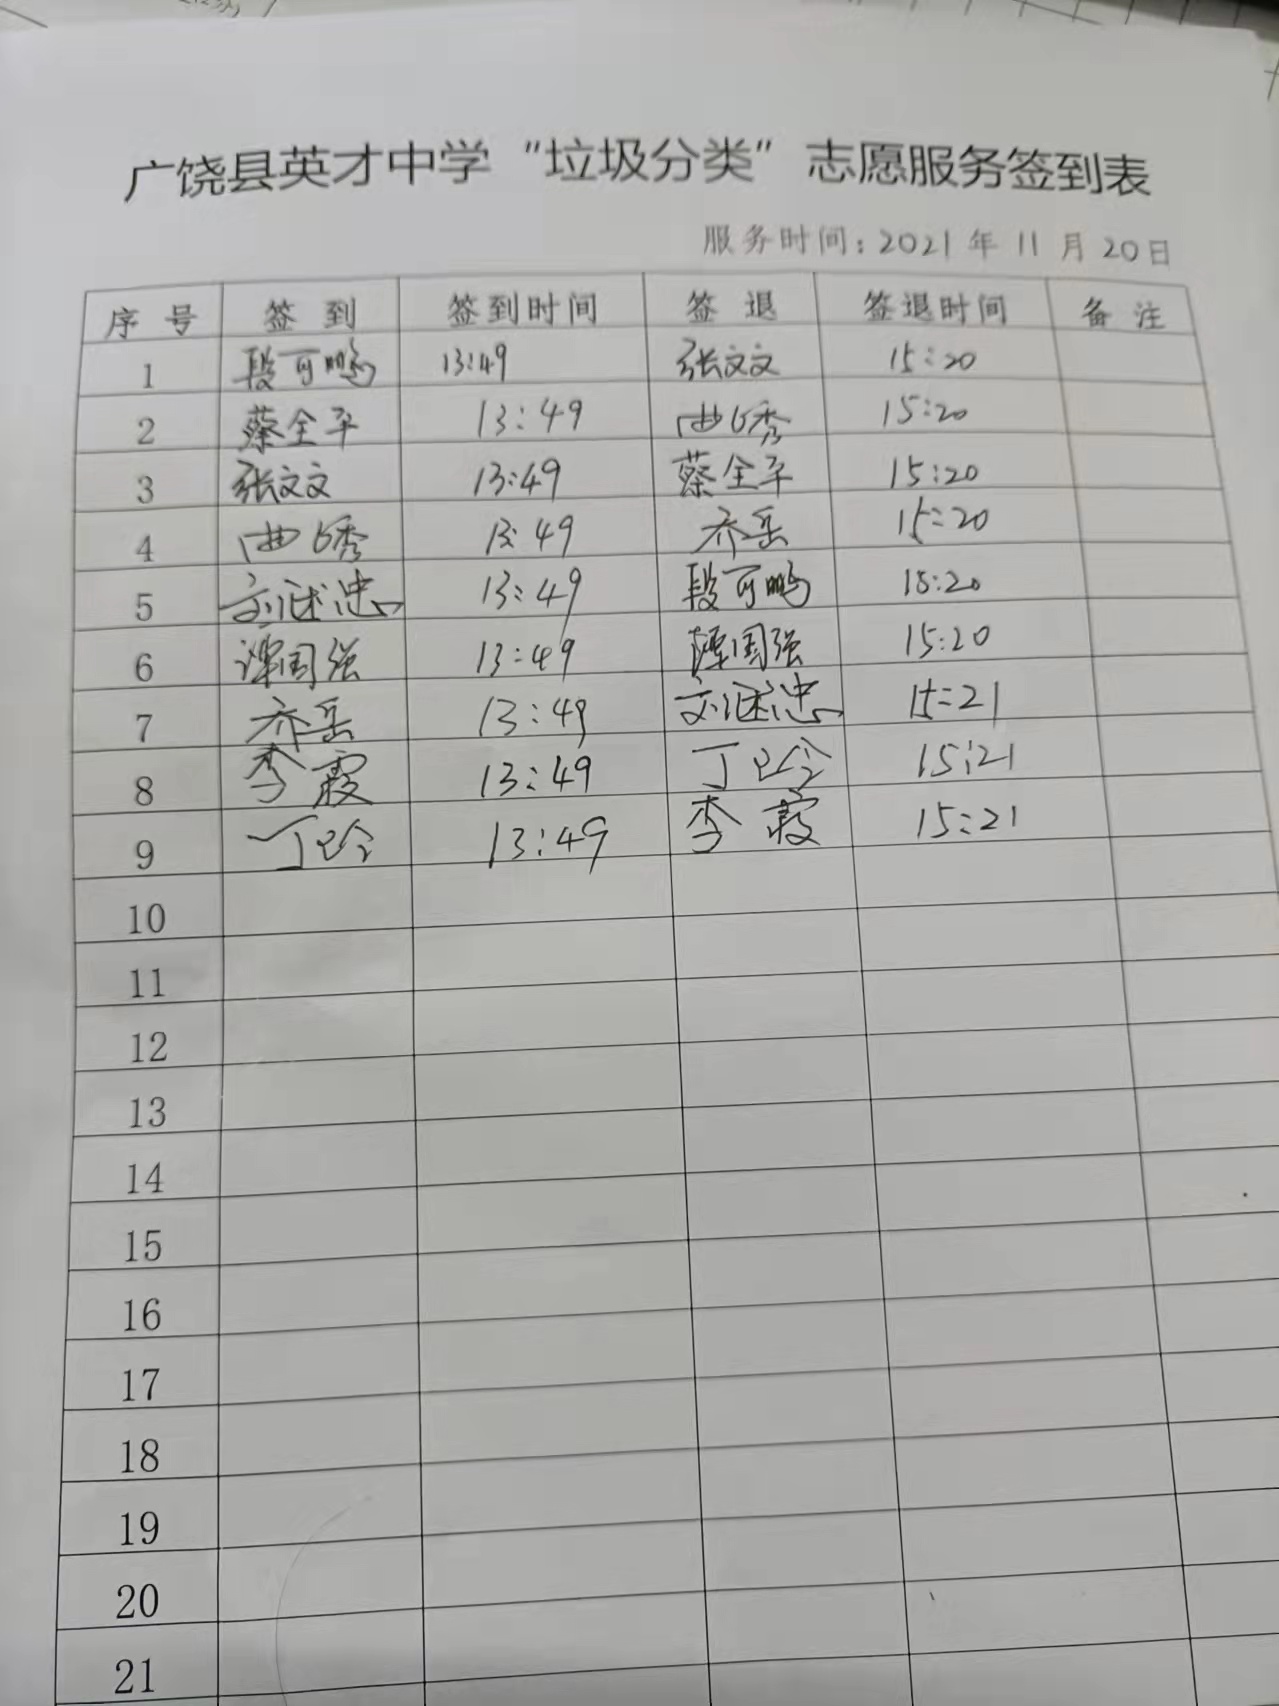 广饶县英才中学“垃圾分类”志愿服务签到表
服务时间：2021年11月20日
序号 签到 签到时间 签退 签退时间 备注
1 段可鹏 13:49 张文文 15:20
2 蔡全平 13:49 15:20
3 张文文 13:49 蔡全平 15:20
4 13:49 乔岳 15:20
5 13:49 段可鹏 15:20
6 谭国强 13:49 谭国强 15:20
7 乔岳 13:49 15:21
8 李霞 13:49 15:21
9 13:49 李霞 15:21
10
11
12
13
14
15
16
17
18
19
20
21